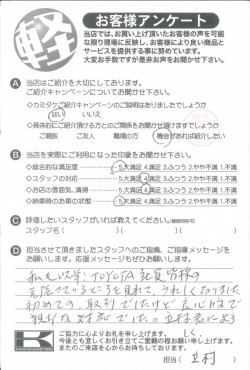 軽
お客様アンケート
当店では、お買い上げ頂いたお客様の声を可能
な限り現場に反映し、お客様により良い商品と
サービスを提供する事に努めています。
大変お手数ですが是非お声をお聞かせ下さい。
A 当店はご紹介を大切にしております。
ご紹介キャンペーンについてお聞かせ下さい。
◇カミタケご紹介キャンペーンのご説明はありましたでしょうか
はい いいえ
◇具体的にご紹介頂ける方とのご関係をお聞かせ頂けますでしょうか
ご親族 ご友人 職場の方 機会があれば紹介したい
B 当店を実際にご利用になった印象をお聞かせ下さい。
◇総合的な満足度 5.大満足 4.満足 3.ふつう 2.やや不満 1.不満
◇スタッフの対応 5.大満足 4.満足 3.ふつう 2.やや不満 1.不満
◇お店の雰囲気、清掃 5.大満足 4.満足 3.ふつう 2.やや不満 1.不満
◇納車時のお車の状態 5.大満足 4.満足 3.ふつう 2.やや不満 1.不満
C 評価したいスタッフがいれば教えてください。
スタッフ名( )( )( )
D 担当させて頂きましたスタッフへのご指摘、ご指導メッセージをお
願いします。応援メッセージもぜひお願いします。
私も以前 TOYOTA 社員 皆様の
初めての、取引でしたけど 良心的で
親切な対応でした。立村君に
ご協力に心よりお礼を申し上げます。
今後とも宜しくお引き立てご愛顧の程お願い申し上げます。
またのご来店を心からお待ちしております。
担当( 立村 )